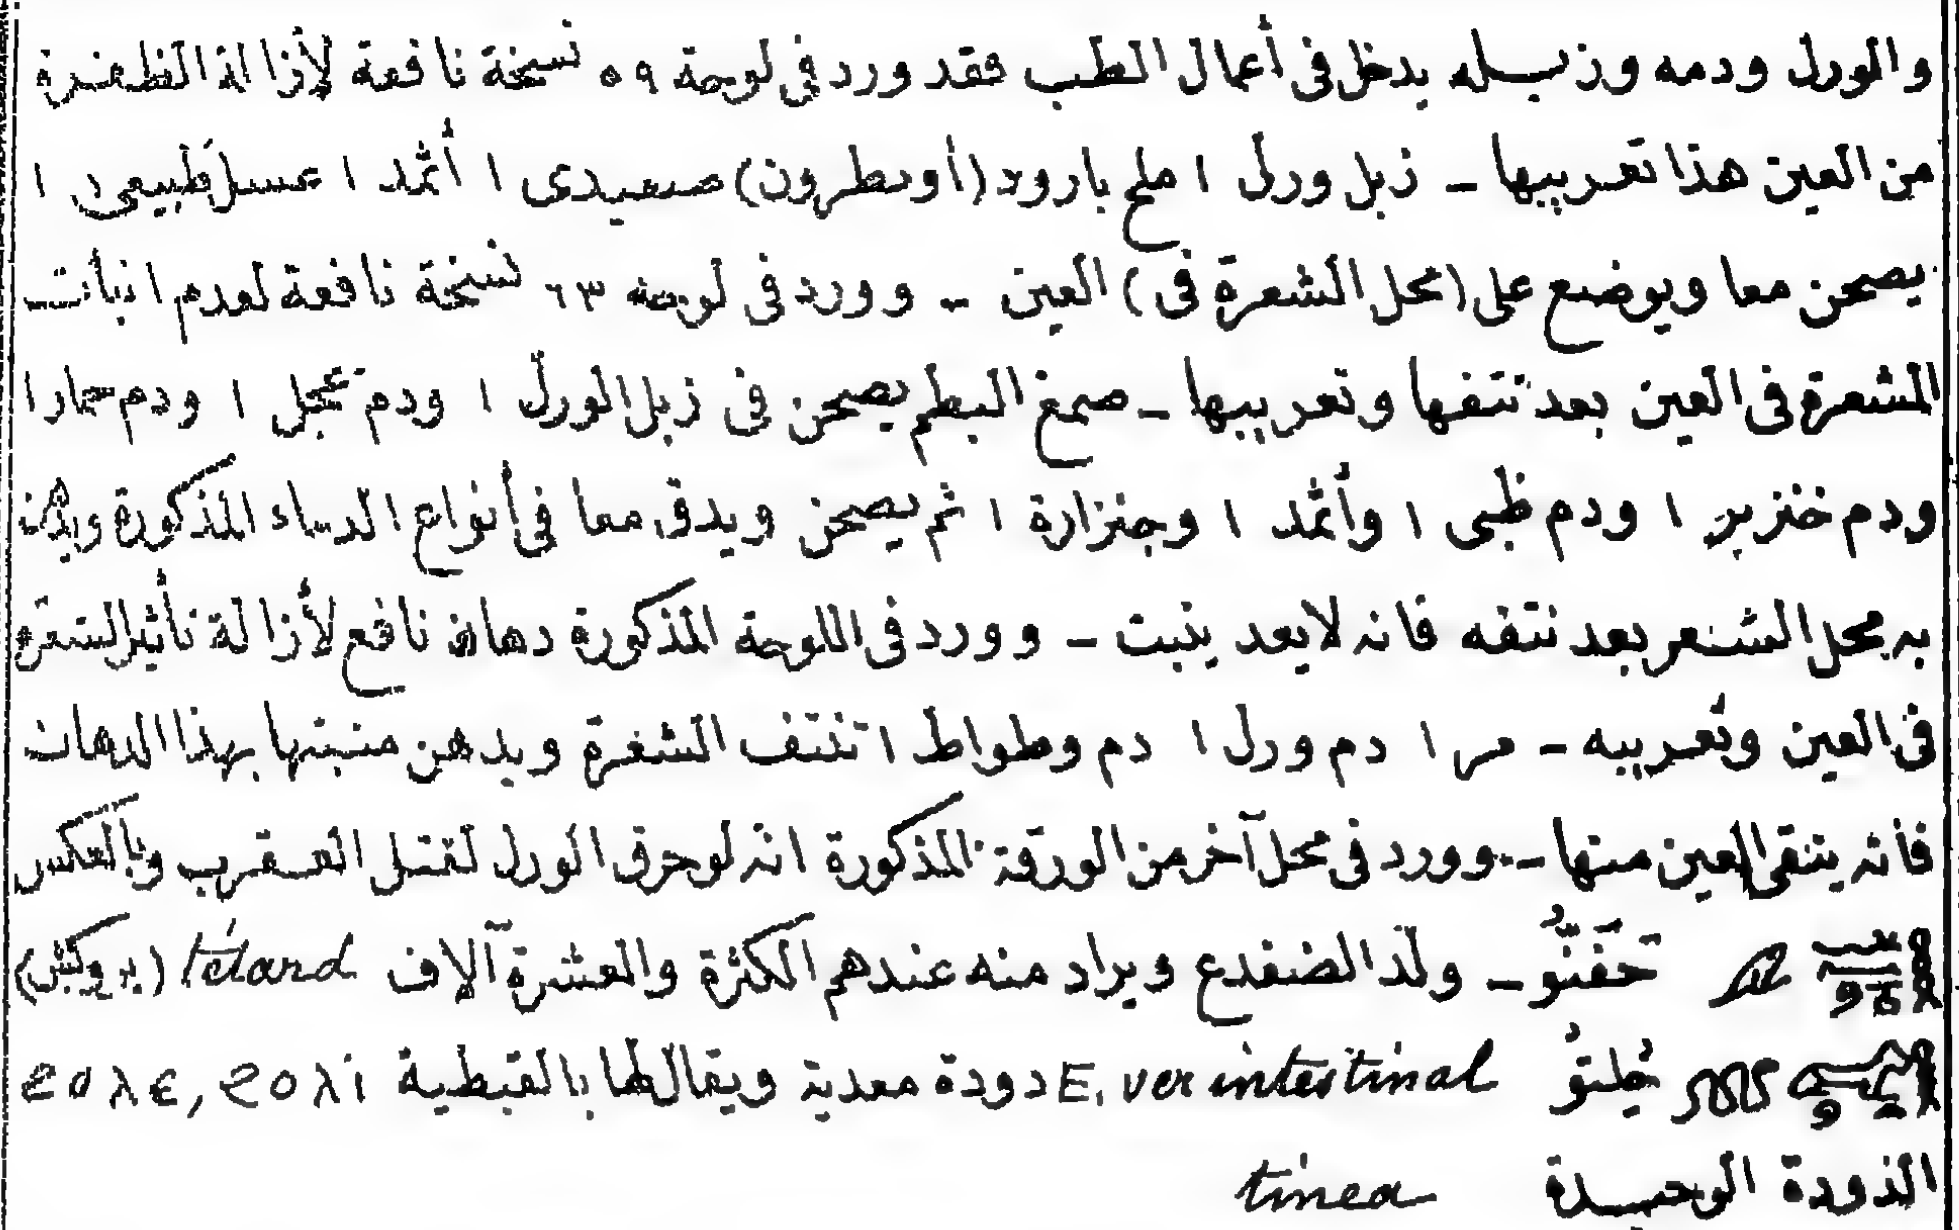 والورل ودمه وزبله يدخل فى أعمال الطب فقد ورد فى لوحة ٥٩ نسخة نافعة لأزالة الظفرة
من العين هذا تعريبها ـ زبل ورل ١ ملح بارود (أو نطرون) صعيدى ١ أثمد ١ عسل طبيعى ١
يصحن معا ويوضع على (محل الشعرة فى) العين ـ وورد فى لوحة ٦٣ نسخة نافعة لعدم انبات
الشعرة فى العين بعد نتفها وتعريبها ـ صمغ البطم يصحن فى زبل الورل ١ ودم عجل ١ ودم حمار ١
ودم خنزير ١ ودم ظبى ١ وأثمد ١ وجنزارة ١ ثم يصحن ويدق معا فى أنواع الدماء المذكورة ويدهن
به محل الشعر بعد نتفه فانه لا يعد ينبت ـ وورد فى اللوحة المذكورة دهان نافع لأزالة تأثير الشعرة
فى العين وتعريبه ـ مر ١ دم ورل ١ دم وطواط ١ تنتف الشعرة ويدهن منبتها بهذا الدهان
فأنه ينقى العين منها ـ وورد فى محل آخر من الورقة المذكورة انه لو حرق الورل لقتل العقرب وبالعكس
حَفَنُّو ـ ولد الضفدع ويراد منه عندهم الكثرة والعشرة آلاف têtard (بروكش)
E. ver intestinal دودة معدية ويقال لها بالقبطية ϩⲟⲗⲉ, ϩⲟⲗⲓ
الدودة الوحيدة tinea